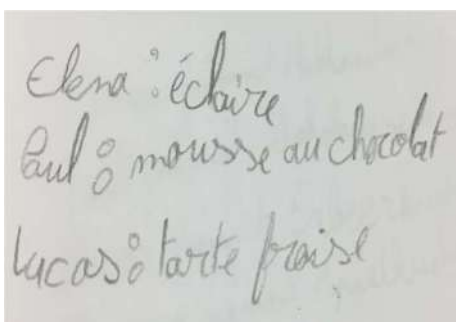 Elena : éclaire
Paul : mousse au chocolat
Lucas : tarte fraise